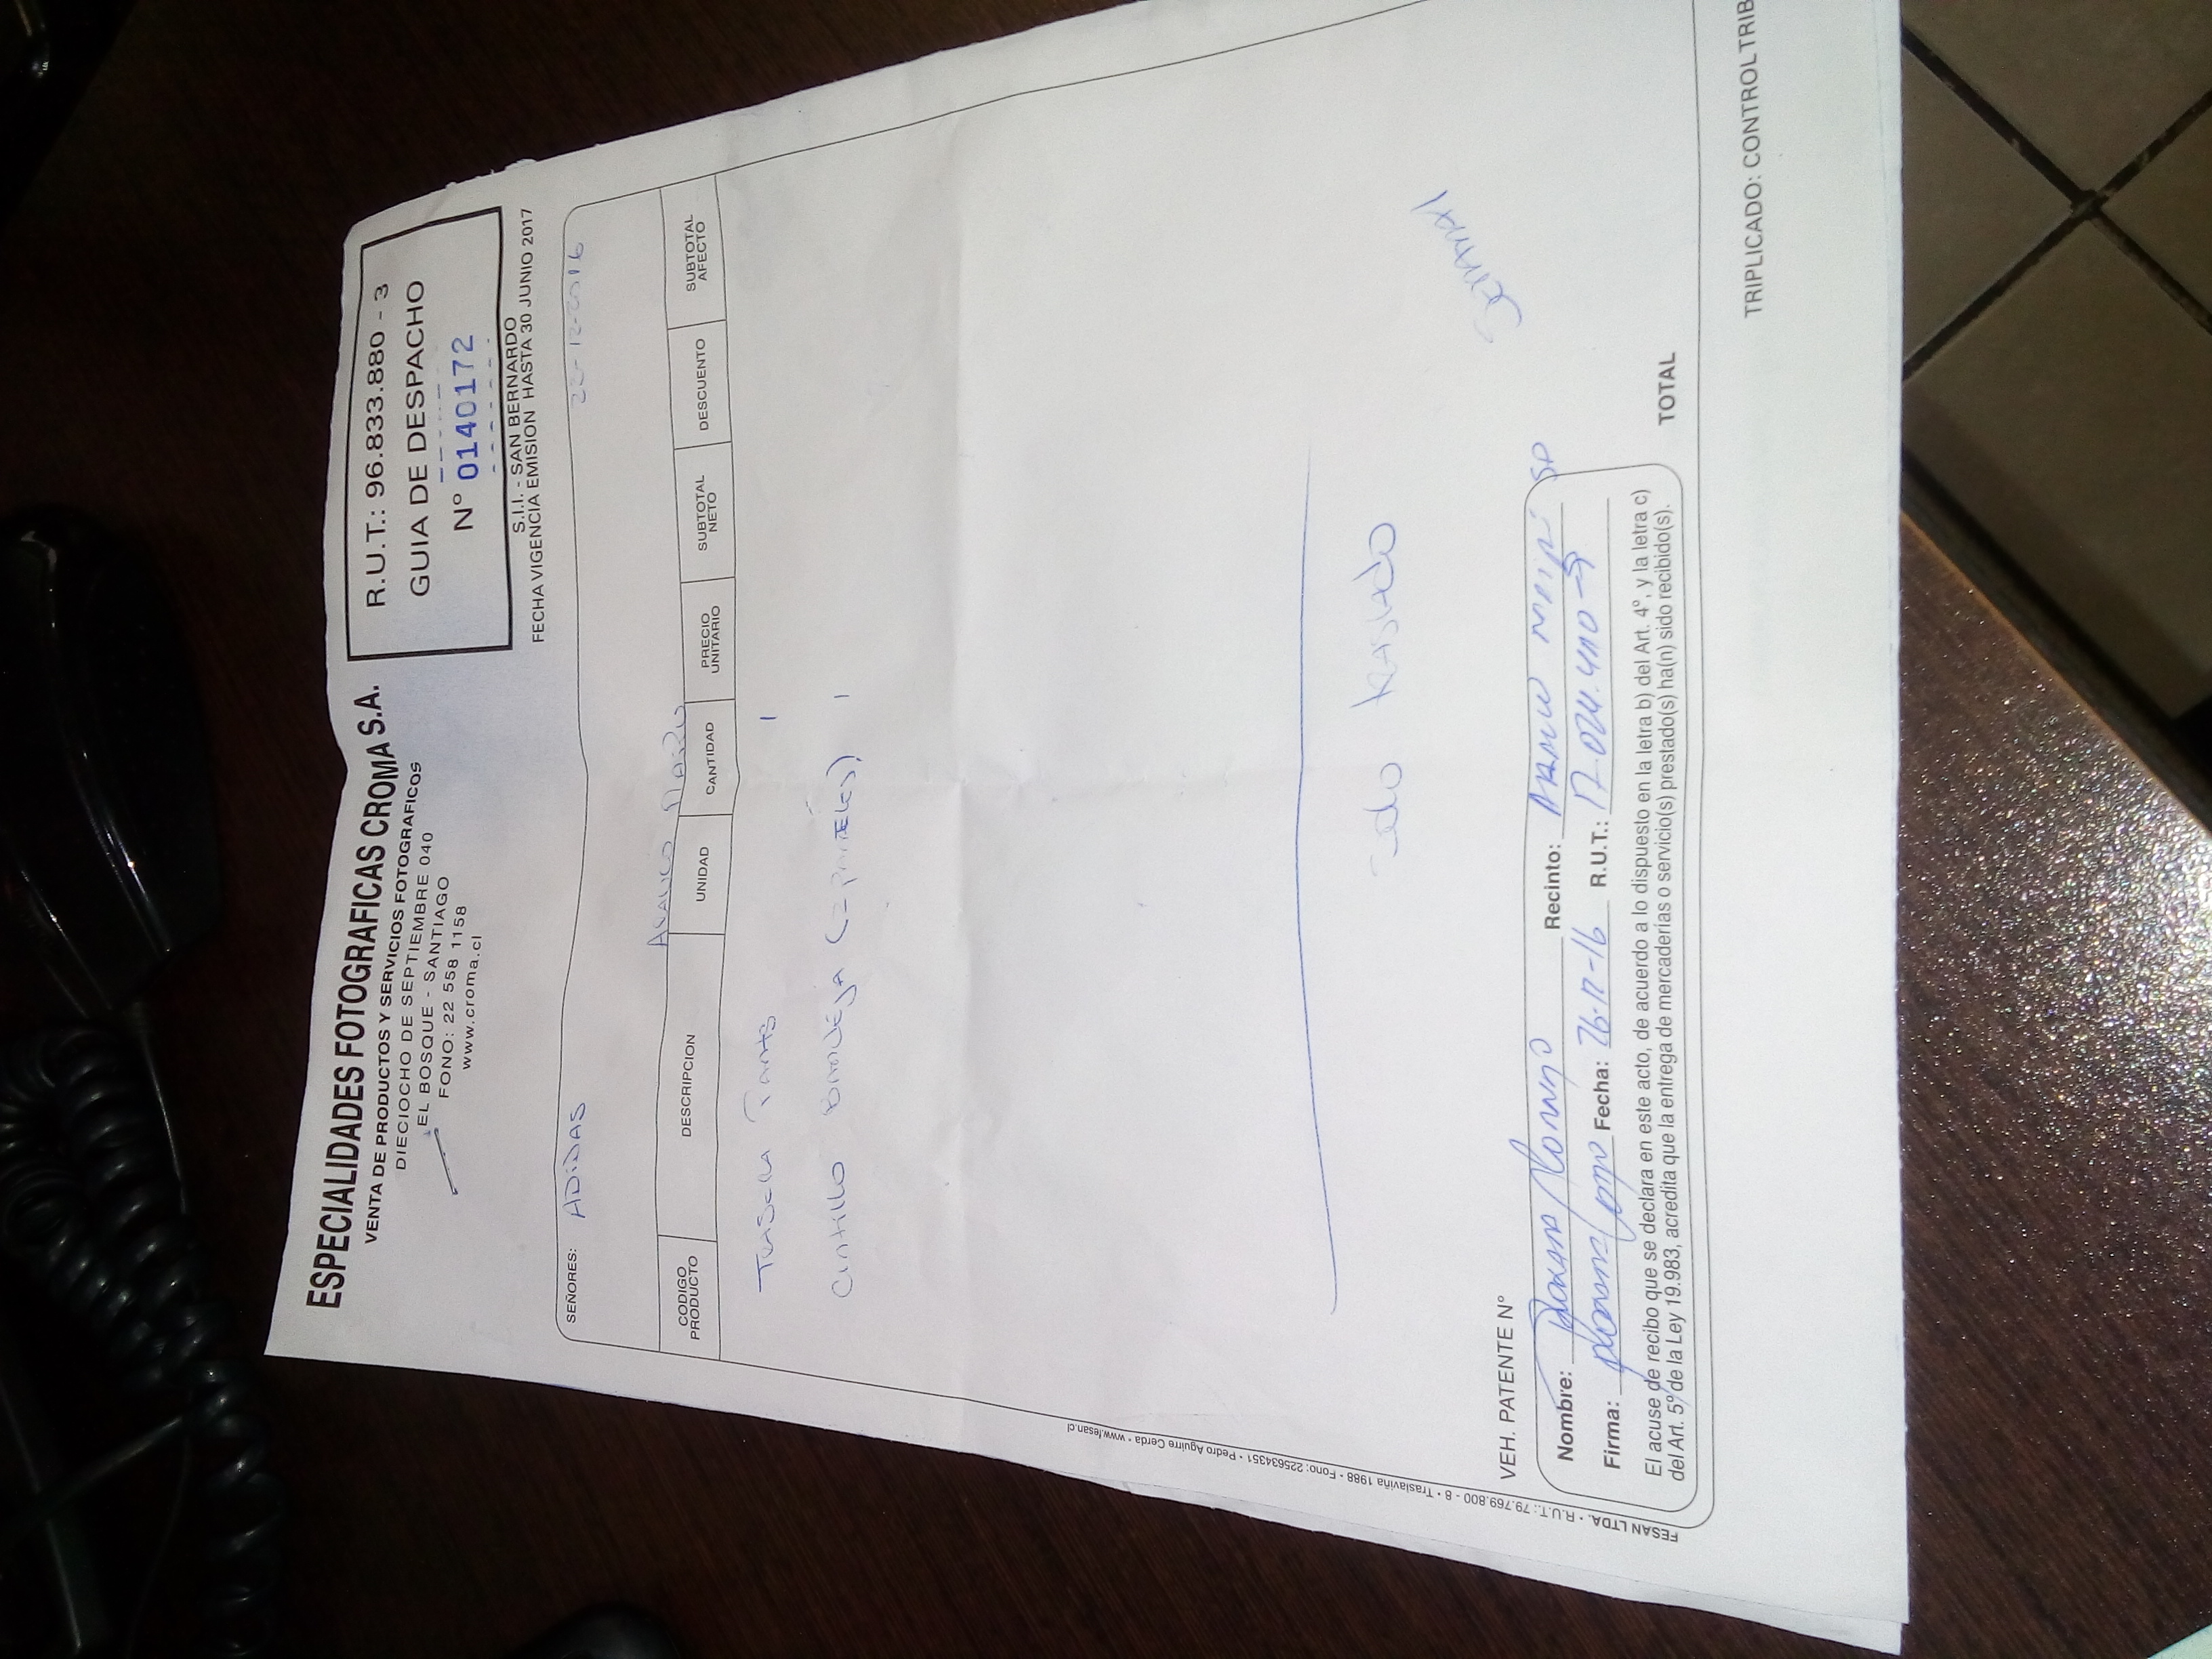 ESPECIALIDADES FOTOGRAFICAS CROMA S.A.
VENTA DE PRODUCTOS Y SERVICIOS FOTOGRAFICOS
DIECIOCHO DE SEPTIEMBRE 040
EL BOSQUE - SANTIAGO
FONO: 22 558 1158
www.croma.cl
R.U.T.: 96.833.880 - 3
GUIA DE DESPACHO
Nº 0140172
S.I.I. - SAN BERNARDO
FECHA VIGENCIA EMISION HASTA 30 JUNIO 2017
SEÑORES: ADIDAS 22-12-2016
ARAUCO MAIPU
CODIGO PRODUCTO DESCRIPCION UNIDAD CANTIDAD PRECIO UNITARIO SUBTOTAL NETO DESCUENTO SUBTOTAL AFECTO
TRASERA 1
Cintillo BANDEJA 1
Solo traslado
Semanal
VEH. PATENTE Nº
Nombre: Recinto: ARAUCO MAIPU
Firma: Fecha: 26-12-16 R.U.T.:
El acuse de recibo que se declara en este acto, de acuerdo a lo dispuesto en la letra b) del Art. 4º, y la letra c)
del Art. 5º de la Ley 19.983, acredita que la entrega de mercaderías o servicio(s) prestado(s) ha(n) sido recibido(s).
TOTAL
TRIPLICADO: CONTROL TRIB
FESAN LTDA. • R.U.T.: 79.769.800 - 8 • Traslaviña 1988 • Fono: 225634351 • Pedro Aguirre Cerda • www.fesan.cl